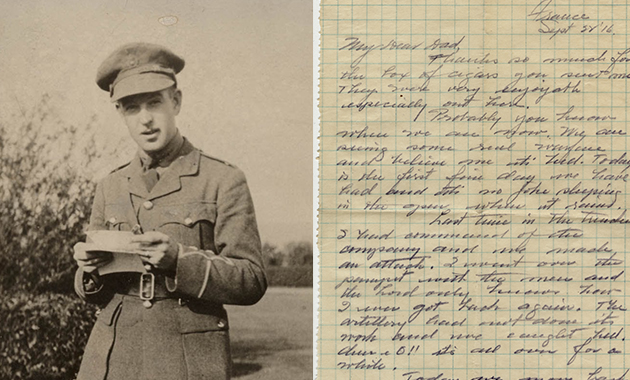 France
Sept 28 '16
My Dear Dad,
Thanks so much for
the box of cigars you sent me
They were very enjoyable
especially out here.
Probably you know
where we are now. We are
seeing some real warfare
and believe me it's hell. Today
is the first fine day we have
had and it's no joke sleeping
in the open when it rains.
Last time in the trenches
I had command of the
company and we made
an attack. I went over the
parapet with the men and
the Lord only knows how
I ever got back again. The
artillery had not done its
work and we caught hell.
it's all over for a
while.
Today we